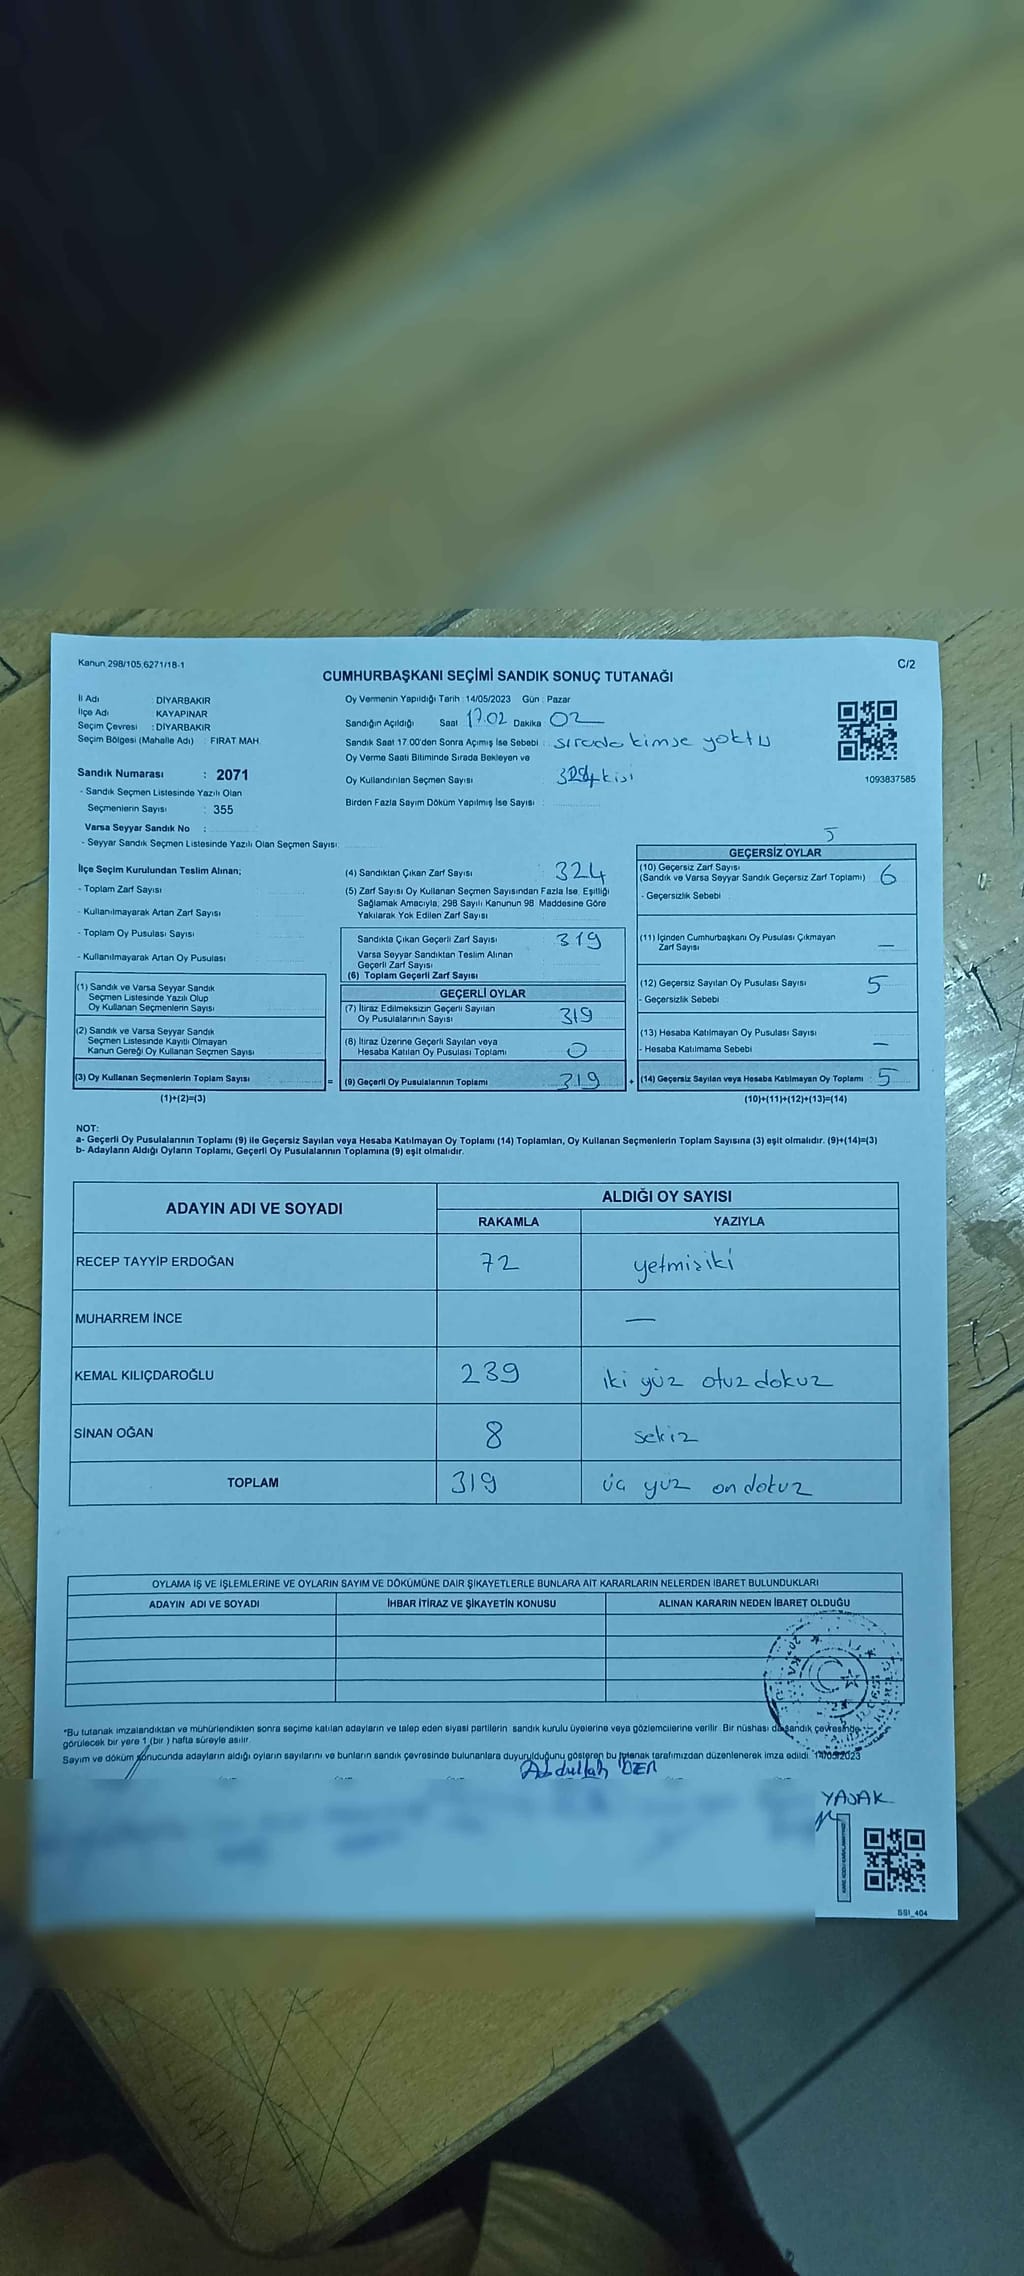 Kanun 298/105,6271/18-1
C/2
CUMHURBAŞKANI SEÇİMİ SANDIK SONUÇ TUTANAĞI
İl Adı : DİYARBAKIR
İlçe Adı : KAYAPINAR
Seçim Çevresi : DİYARBAKIR
Seçim Bölgesi (Mahalle Adı) : FIRAT MAH.
Sandık Numarası : 2071
- Sandık Seçmen Listesinde Yazılı Olan
Seçmenlerin Sayısı : 355
Varsa Seyyar Sandık No :
- Seyyar Sandık Seçmen Listesinde Yazılı Olan Seçmen Sayısı:
Oy Vermenin Yapıldığı Tarih : 14/05/2023 Gün : Pazar
Sandığın Açıldığı Saat 17.02 Dakika 02
Sandık Saat 17.00'den Sonra Açımış İse Sebebi : sırada kimse yoktu
Oy Verme Saati Bitiminde Sırada Bekleyen ve
Oy Kullandırılan Seçmen Sayısı kişi
Birden Fazla Sayım Döküm Yapılmış İse Sayısı :
1093837585
İlçe Seçim Kurulundan Teslim Alınan;
- Toplam Zarf Sayısı
- Kullanılmayarak Artan Zarf Sayısı
- Toplam Oy Pusulası Sayısı
- Kullanılmayarak Artan Oy Pusulası
(1) Sandık ve Varsa Seyyar Sandık
Seçmen Listesinde Yazılı Olup
Oy Kullanan Seçmenlerin Sayısı
(2) Sandık ve Varsa Seyyar Sandık
Seçmen Listesinde Kayıtlı Olmayan
Kanun Gereği Oy Kullanan Seçmen Sayısı
(3) Oy Kullanan Seçmenlerin Toplam Sayısı =
(1)+(2)=(3)
(4) Sandıktan Çıkan Zarf Sayısı 324
(5) Zarf Sayısı Oy Kullanan Seçmen Sayısından Fazla İse, Eşitliği
Sağlamak Amacıyla, 298 Sayılı Kanunun 98. Maddesine Göre
Yakılarak Yok Edilen Zarf Sayısı
Sandıkta Çıkan Geçerli Zarf Sayısı 319
Varsa Seyyar Sandıktan Teslim Alınan
Geçerli Zarf Sayısı
(6) Toplam Geçerli Zarf Sayısı
GEÇERLİ OYLAR
(7) İtiraz Edilmeksizin Geçerli Sayılan
Oy Pusulalarının Sayısı 319
(8) İtiraz Üzerine Geçerli Sayılan veya
Hesaba Katılan Oy Pusulası Toplamı 0
(9) Geçerli Oy Pusulalarının Toplamı 319 +
5
GEÇERSİZ OYLAR
(10) Geçersiz Zarf Sayısı
(Sandık ve Varsa Seyyar Sandık Geçersiz Zarf Toplamı) 6
- Geçersizlik Sebebi
(11) İçinden Cumhurbaşkanı Oy Pusulası Çıkmayan
Zarf Sayısı —
(12) Geçersiz Sayılan Oy Pusulası Sayısı 5
- Geçersizlik Sebebi
(13) Hesaba Katılmayan Oy Pusulası Sayısı
- Hesaba Katılmama Sebebi —
(14) Geçersiz Sayılan veya Hesaba Katılmayan Oy Toplamı 5
(10)+(11)+(12)+(13)=(14)
NOT:
a- Geçerli Oy Pusulalarının Toplamı (9) ile Geçersiz Sayılan veya Hesaba Katılmayan Oy Toplamı (14) Toplamları, Oy Kullanan Seçmenlerin Toplam Sayısına (3) eşit olmalıdır. (9)+(14)=(3)
b- Adayların Aldığı Oyların Toplamı, Geçerli Oy Pusulalarının Toplamına (9) eşit olmalıdır.
ADAYIN ADI VE SOYADI
ALDIĞI OY SAYISI
RAKAMLA YAZIYLA
RECEP TAYYİP ERDOĞAN 72 yetmişiki
MUHARREM İNCE —
KEMAL KILIÇDAROĞLU 239 iki yüz otuz dokuz
SİNAN OĞAN 8 sekiz
TOPLAM 319 üç yüz on dokuz
OYLAMA İŞ VE İŞLEMLERİNE VE OYLARIN SAYIM VE DÖKÜMÜNE DAİR ŞİKAYETLERLE BUNLARA AİT KARARLARIN NELERDEN İBARET BULUNDUKLARI
ADAYIN ADI VE SOYADI İHBAR İTİRAZ VE ŞİKAYETİN KONUSU ALINAN KARARIN NEDEN İBARET OLDUĞU
*Bu tutanak imzalandıktan ve mühürlendikten sonra seçime katılan adayların ve talep eden siyasi partilerin sandık kurulu üyelerine veya gözlemcilerine verilir. Bir nüshası da sandık çevresinde
görülecek bir yere 1 (bir ) hafta süreyle asılır.
Sayım ve döküm sonucunda adayların aldığı oyların sayılarını ve bunların sandık çevresinde bulunanlara duyurulduğunu gösteren bu tutanak tarafımızdan düzenlenerek imza edildi. 14/05/2023
Abdullah
YAŞAK
SSI_404